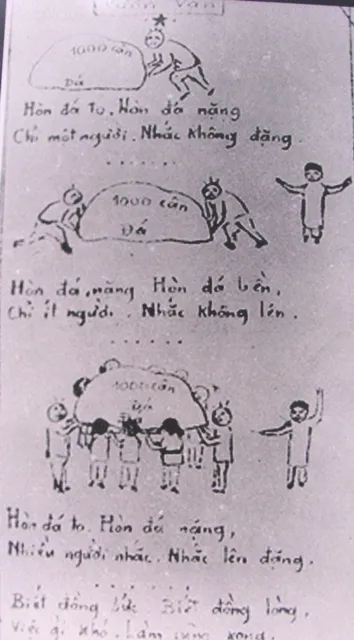 1000 cân
Đá
Hòn đá to, Hòn đá nặng
Chỉ một người. Nhắc không đặng.
.......
1000 cân
Đá
Hòn đá nặng Hòn đá bền,
Chỉ ít người. Nhắc không lên.
......
1000 cân
Đá
Hòn đá to. Hòn đá nặng,
Nhiều người nhắc. Nhắc lên đặng.
......
Biết đồng sức Biết đồng lòng,
Việc gì khó. Làm cũng xong.